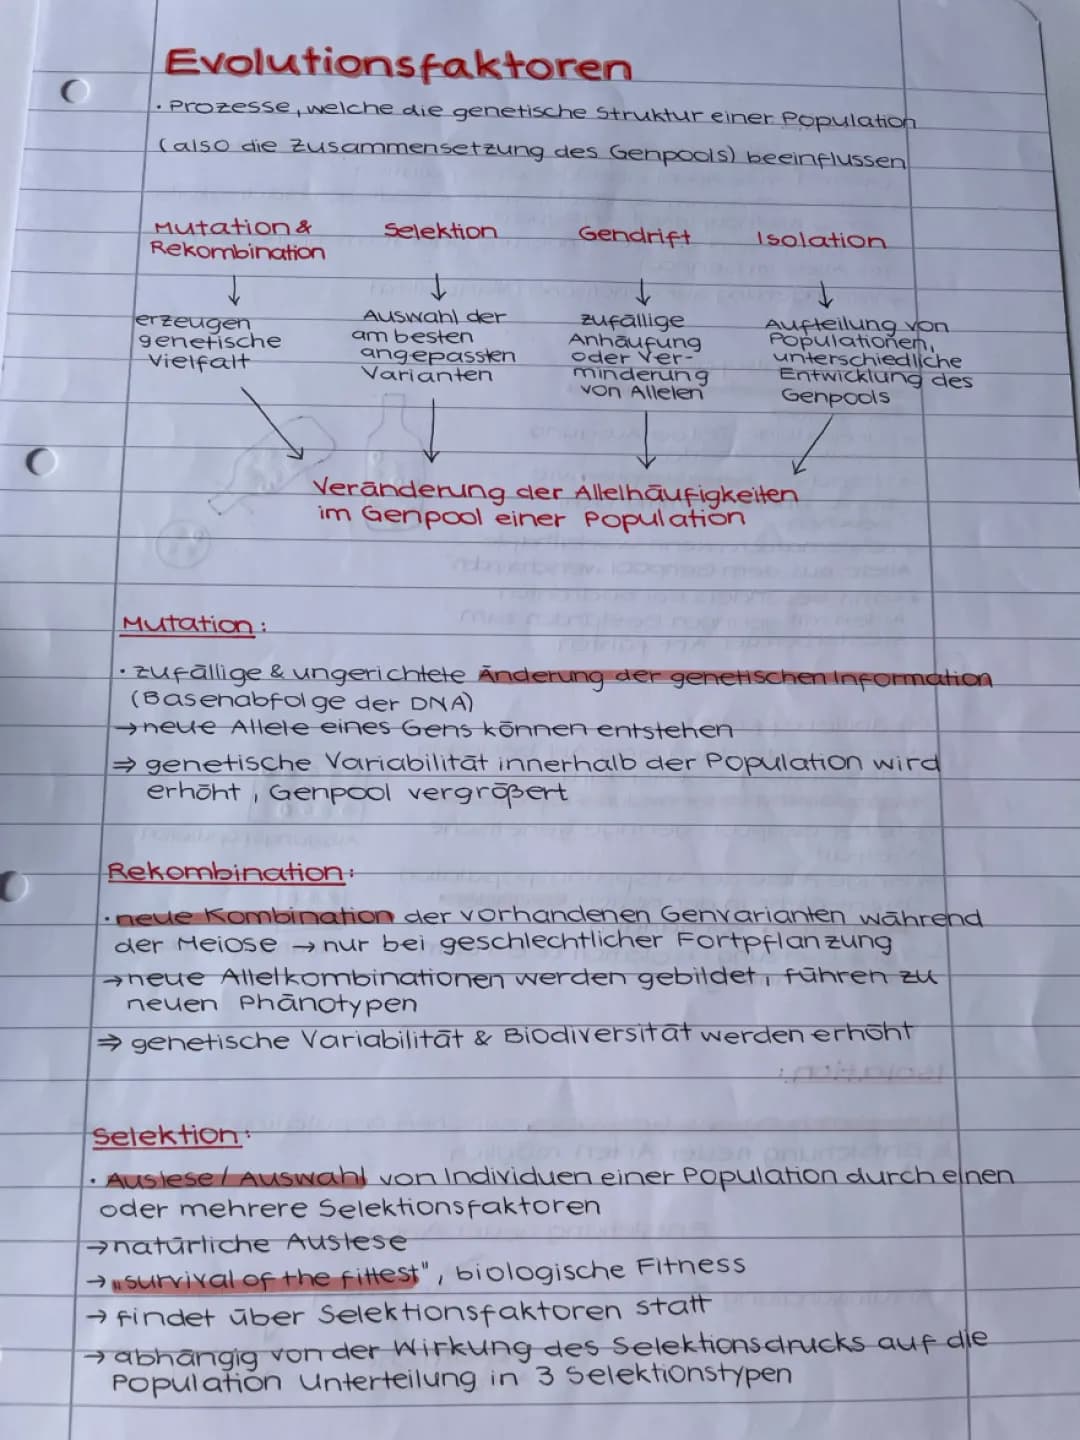 Evolutionsfaktoren
· Prozesse, welche die genetische Struktur einer Population
(also die Zusammensetzung des Genpools) beeinflussen
Mutation &
Rekombination
↓
erzeugen
genetische
Vielfalt
Selektion
↓
Auswahl der
am besten
angepassten
Varianten
Gendrift
↓
zufällige
Anhäufung
oder Ver-
minderung
von Allelen
Isolation
↓
Aufteilung von
Populationen,
unterschiedliche
Entwicklung des
Genpools
Veränderung der Allelhäufigkeiten
im Genpool einer Population
Mutation:
· zufällige & ungerichtete Änderung der genetischen Information
(Basenabfolge der DNA)
→ neue Allele eines Gens können entstehen
⇒ genetische Variabilität innerhalb der Population wird
erhöht, Genpool vergrößert
Rekombination:
· neue Kombination der vorhandenen Genvarianten während
der Meiose → nur bei geschlechtlicher Fortpflanzung
→ neue Allelkombinationen werden gebildet, führen zu
neuen Phänotypen
⇒ genetische Variabilität & Biodiversität werden erhöht
Selektion:
· Auslese / Auswahl von Individuen einer Population durch einen
oder mehrere Selektionsfaktoren
→ natürliche Auslese
→ „survival of the fittest", biologische Fitness
→ findet über Selektionsfaktoren statt
→ abhängig von der Wirkung des Selektionsdrucks auf die
Population Unterteilung in 3 Selektionstypen